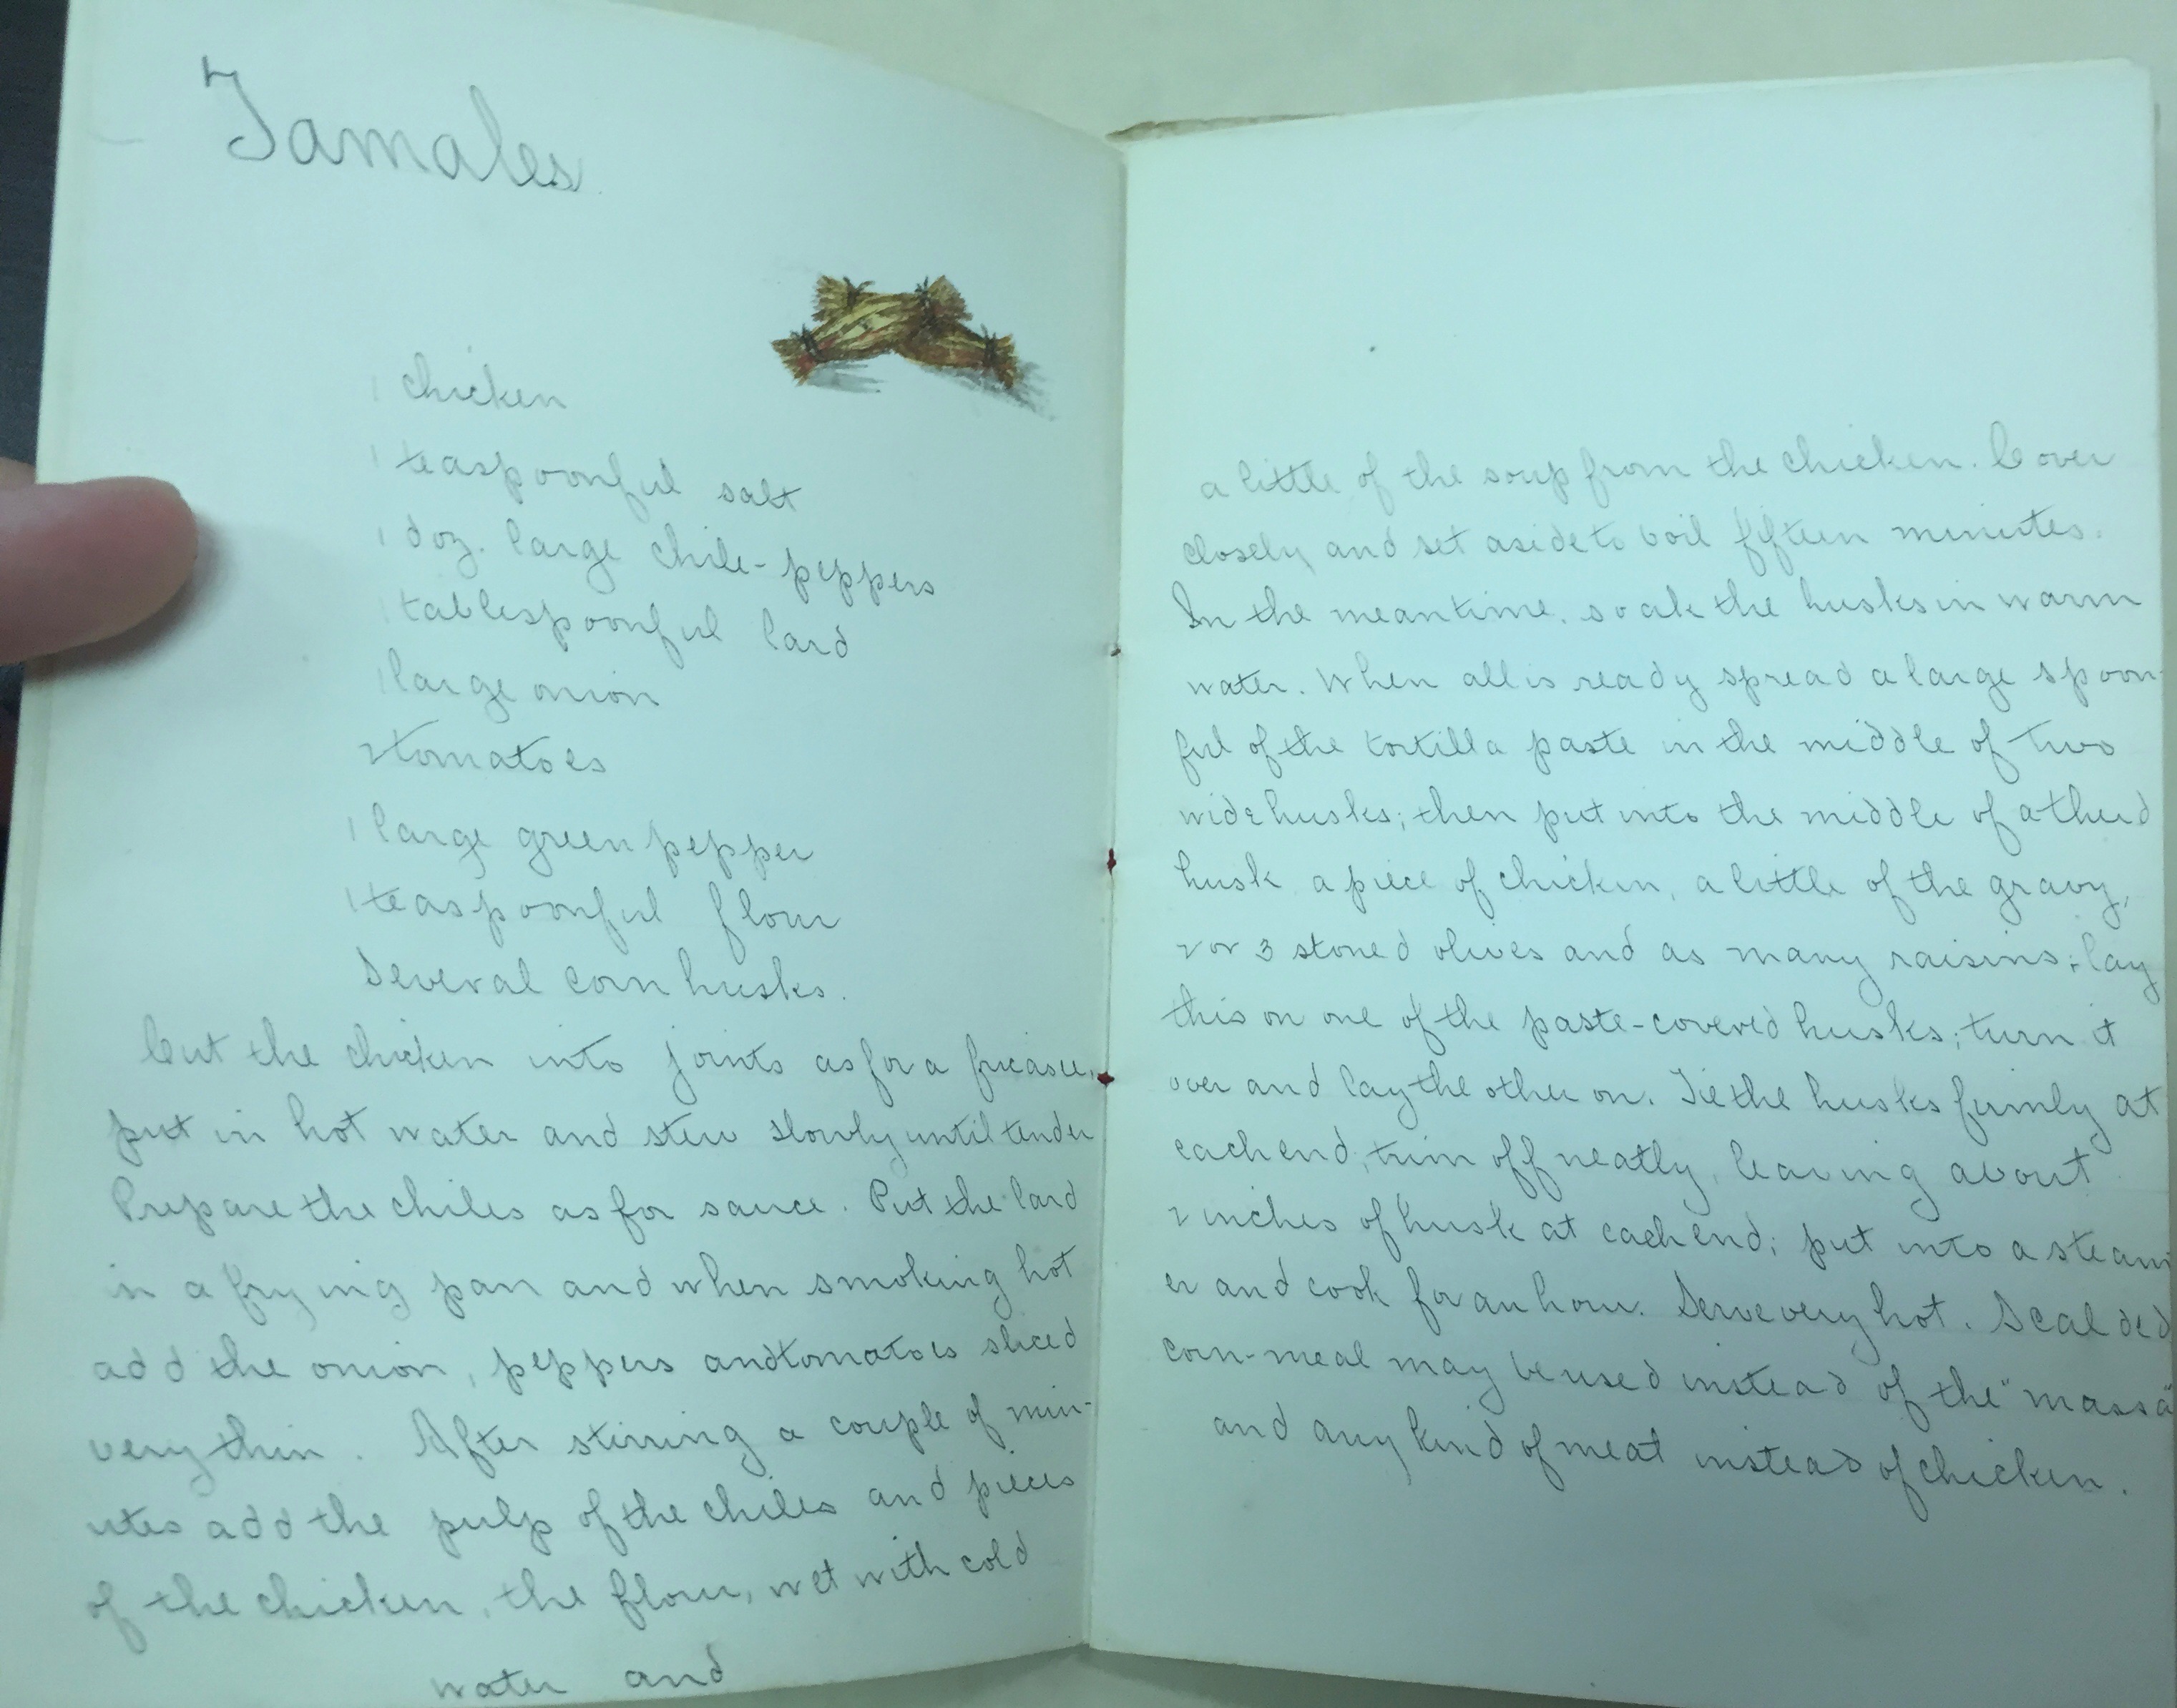 Tamales
1 chicken
1 teaspoonful salt
1 doz. large chile-peppers
1 tablespoonful lard
1 large onion
2 tomatoes
1 large green pepper
1 teaspoonful flour
Several corn husks.
Cut the chicken into joints as for a fricasee,
put in hot water and stew slowly until tender
Prepare the chiles as for sauce. Put the lard
in a frying pan and when smoking hot
add the onion, peppers and tomatoes sliced
very thin. After stirring a couple of min-
utes add the pulp of the chiles and pieces
of the chicken, the flour, wet with cold
water and
a little of the soup from the chicken. Cover
closely and set aside to boil fifteen minutes.
In the meantime, soak the husks in warm
water. When all is ready spread a large spoon-
ful of the tortilla paste in the middle of two
wide husks; then put into the middle of a third
husk a piece of chicken, a little of the gravy,
2 or 3 stoned olives and as many raisins; lay
this on one of the paste-covered husks; turn it
over and lay the other on. Tie the husks firmly at
each end, trim off neatly, leaving about
2 inches of husk at each end; put into a steam
er and cook for an hour. Serve very hot. Scalded
corn-meal may be used instead of the "massa"
and any kind of meat instead of chicken.